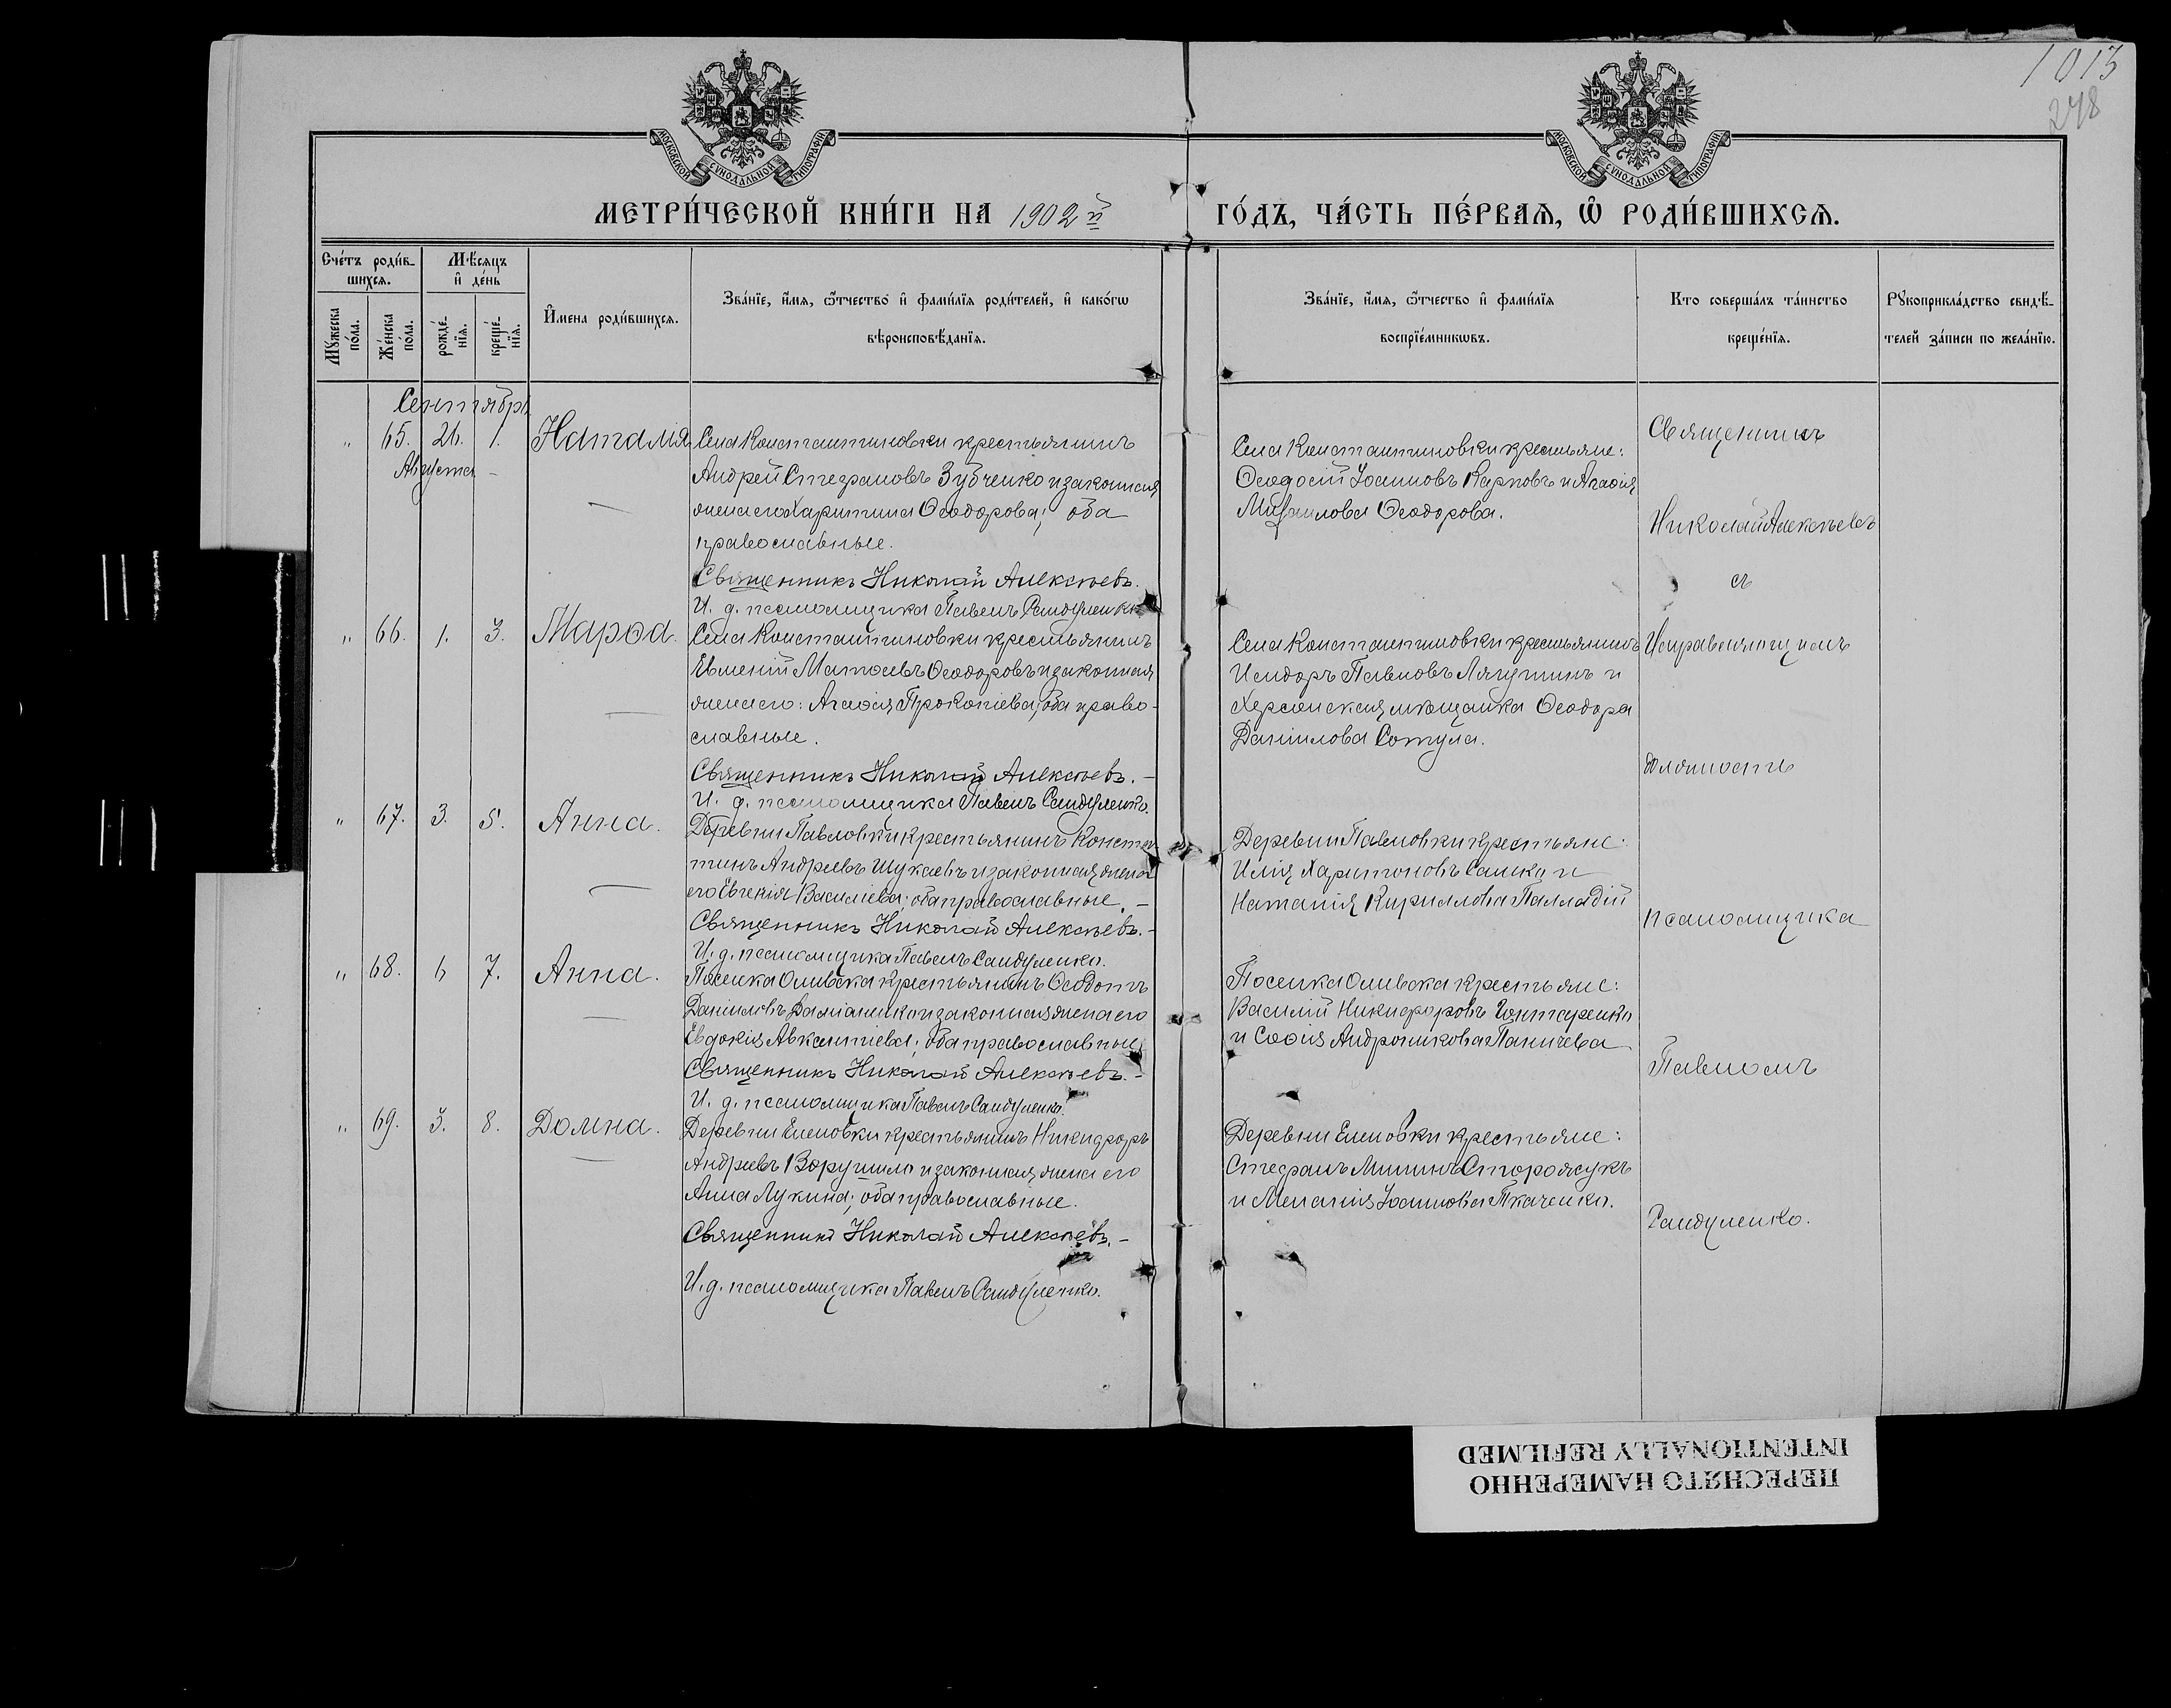 1013
278
МОСКОВСКОЙ СѴНОДАЛЬНОЙ ТИПОГРАФІИ
МОСКОВСКОЙ СѴНОДАЛЬНОЙ ТИПОГРАФІИ
МЕТРИ́ЧЕСКОЙ КНИ́ГИ НА 1902 й
ГО́ДЪ, ЧА́СТЬ ПЕ́РВАѦ, Ѿ РОДИ́ВШИХСѦ.
Сче́тъ роди́в-
шихсѧ.
Мꙋ́жеска по́ла.
Же́нска по́ла.
М�ѣ́сѧцъ и҆ де́нь
рожде́-нїѧ.
креще́-нїѧ.
И҆мена роди́вшихсѧ.
Зва́нїе, и҆́мѧ, ѻ҆́тчество и҆ фами́лїѧ роди́телей, и҆ како́гѡ
вѣроисповѣ́данїѧ.
Зва́нїе, и҆́мѧ, ѻ҆́тчество и҆ фами́лїѧ
воспрїе́мникѡвъ.
Кто соверша́лъ та́инство
креще́нїѧ.
Рꙋкоприкла́дство свидѣ́-
телей за́писи по жела́нїю.
Сентябрь
" 65. 26. 1. Наталія
Августа
Села Константиновки крестьянинъ
Андрей Стефановъ Зубченко и законная
жена его Харитина Ѳеодорова; оба
православные.
Священникъ Николай Алексѣевъ.
И. д. псаломщика Павелъ Сандуленко
Села Константиновки крестьяне:
Ѳеодосій Іоанновъ Карповъ и Агаѳія
Михаилова Ѳеодорова.
" 66. 1. 3. Марѳа.
Села Константиновки крестьянинъ
Евменій Матѳеевъ Ѳеодоровъ и законная
жена его: Агаѳія Прокопіева; оба право-
славные.
Священникъ Николай Алексѣевъ.
И. д. псаломщика Павелъ Сандуленко.
Села Константиновки крестьянинъ
Исидоръ Павловъ Лягушинъ и
Херсонская мѣщанка Ѳеодора
Даніилова Сотула.
" 67. 3. 5. Анна.
Деревни Павловки крестьянинъ Конста
тинъ Андреевъ Шукаевъ и законная жена
его Евгенія Василіева; оба православные.
Священникъ Николай Алексѣевъ.
И. д. псаломщика Павелъ Сандуленко.
Деревни Павловки крестьяне:
Илія Харитоновъ и
Наталія Кириллова Палладій
" 68. 6 7. Анна.
Поселка Ольвска крестьянинъ Ѳеодотъ
Даніиловъ Даміаненко и законная жена его
Евдокія Авксентіева; оба православные
Священникъ Николай Алексѣевъ.
И. д. псаломщика Павелъ Сандуленко.
Поселка Ольвска крестьяне:
Василій Никифоровъ
и Софія Андроникова Паничева
" 69. 3. 8. Домна.
Деревни Еленовки крестьянинъ Никифоръ
Андреевъ Ворушило и законная жена его
Анна Лукина; оба православные.
Священникъ Николай Алексѣевъ.
И. д. псаломщика Павелъ Сандуленко.
Деревни Еленовки крестьяне:
Стефанъ Мининъ Сторожукъ
и Меланія Іоаннова Ткаченко.
Священникъ
Николай Алексѣевъ
съ
Исправляющимъ
должность
псаломщика
Павломъ
Сандуленко.
ПЕРЕСНЯТО НАМЕРЕННО
INTENTIONALLY REFILMED